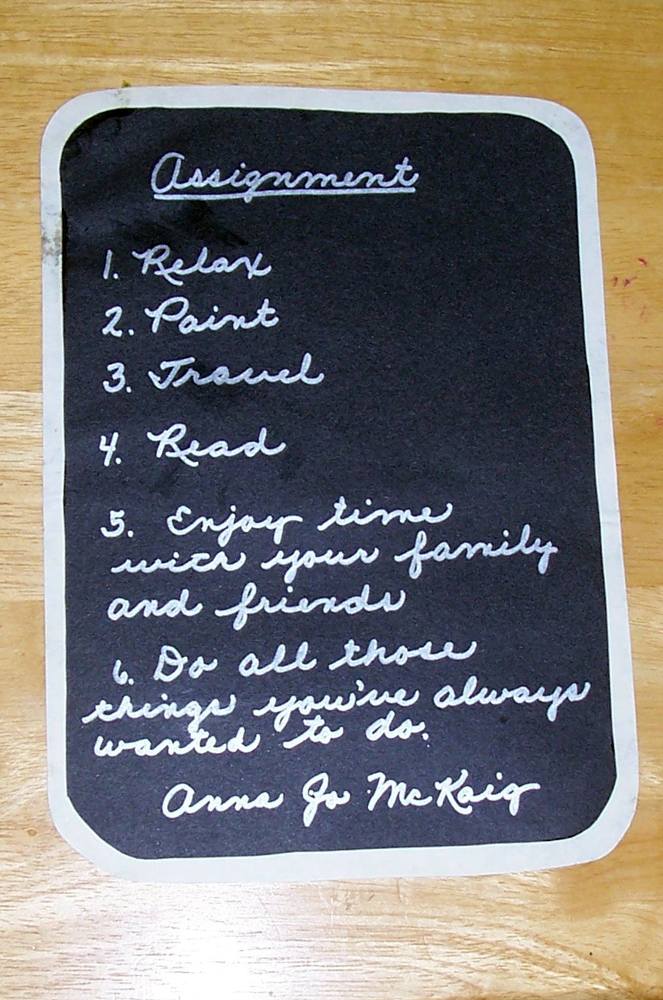 Assignment
1. Relax
2. Paint
3. Travel
4. Read
5. Enjoy time
with your family
and friends
6. Do all those
things you've always
wanted to do.
Anna Jo McKaig